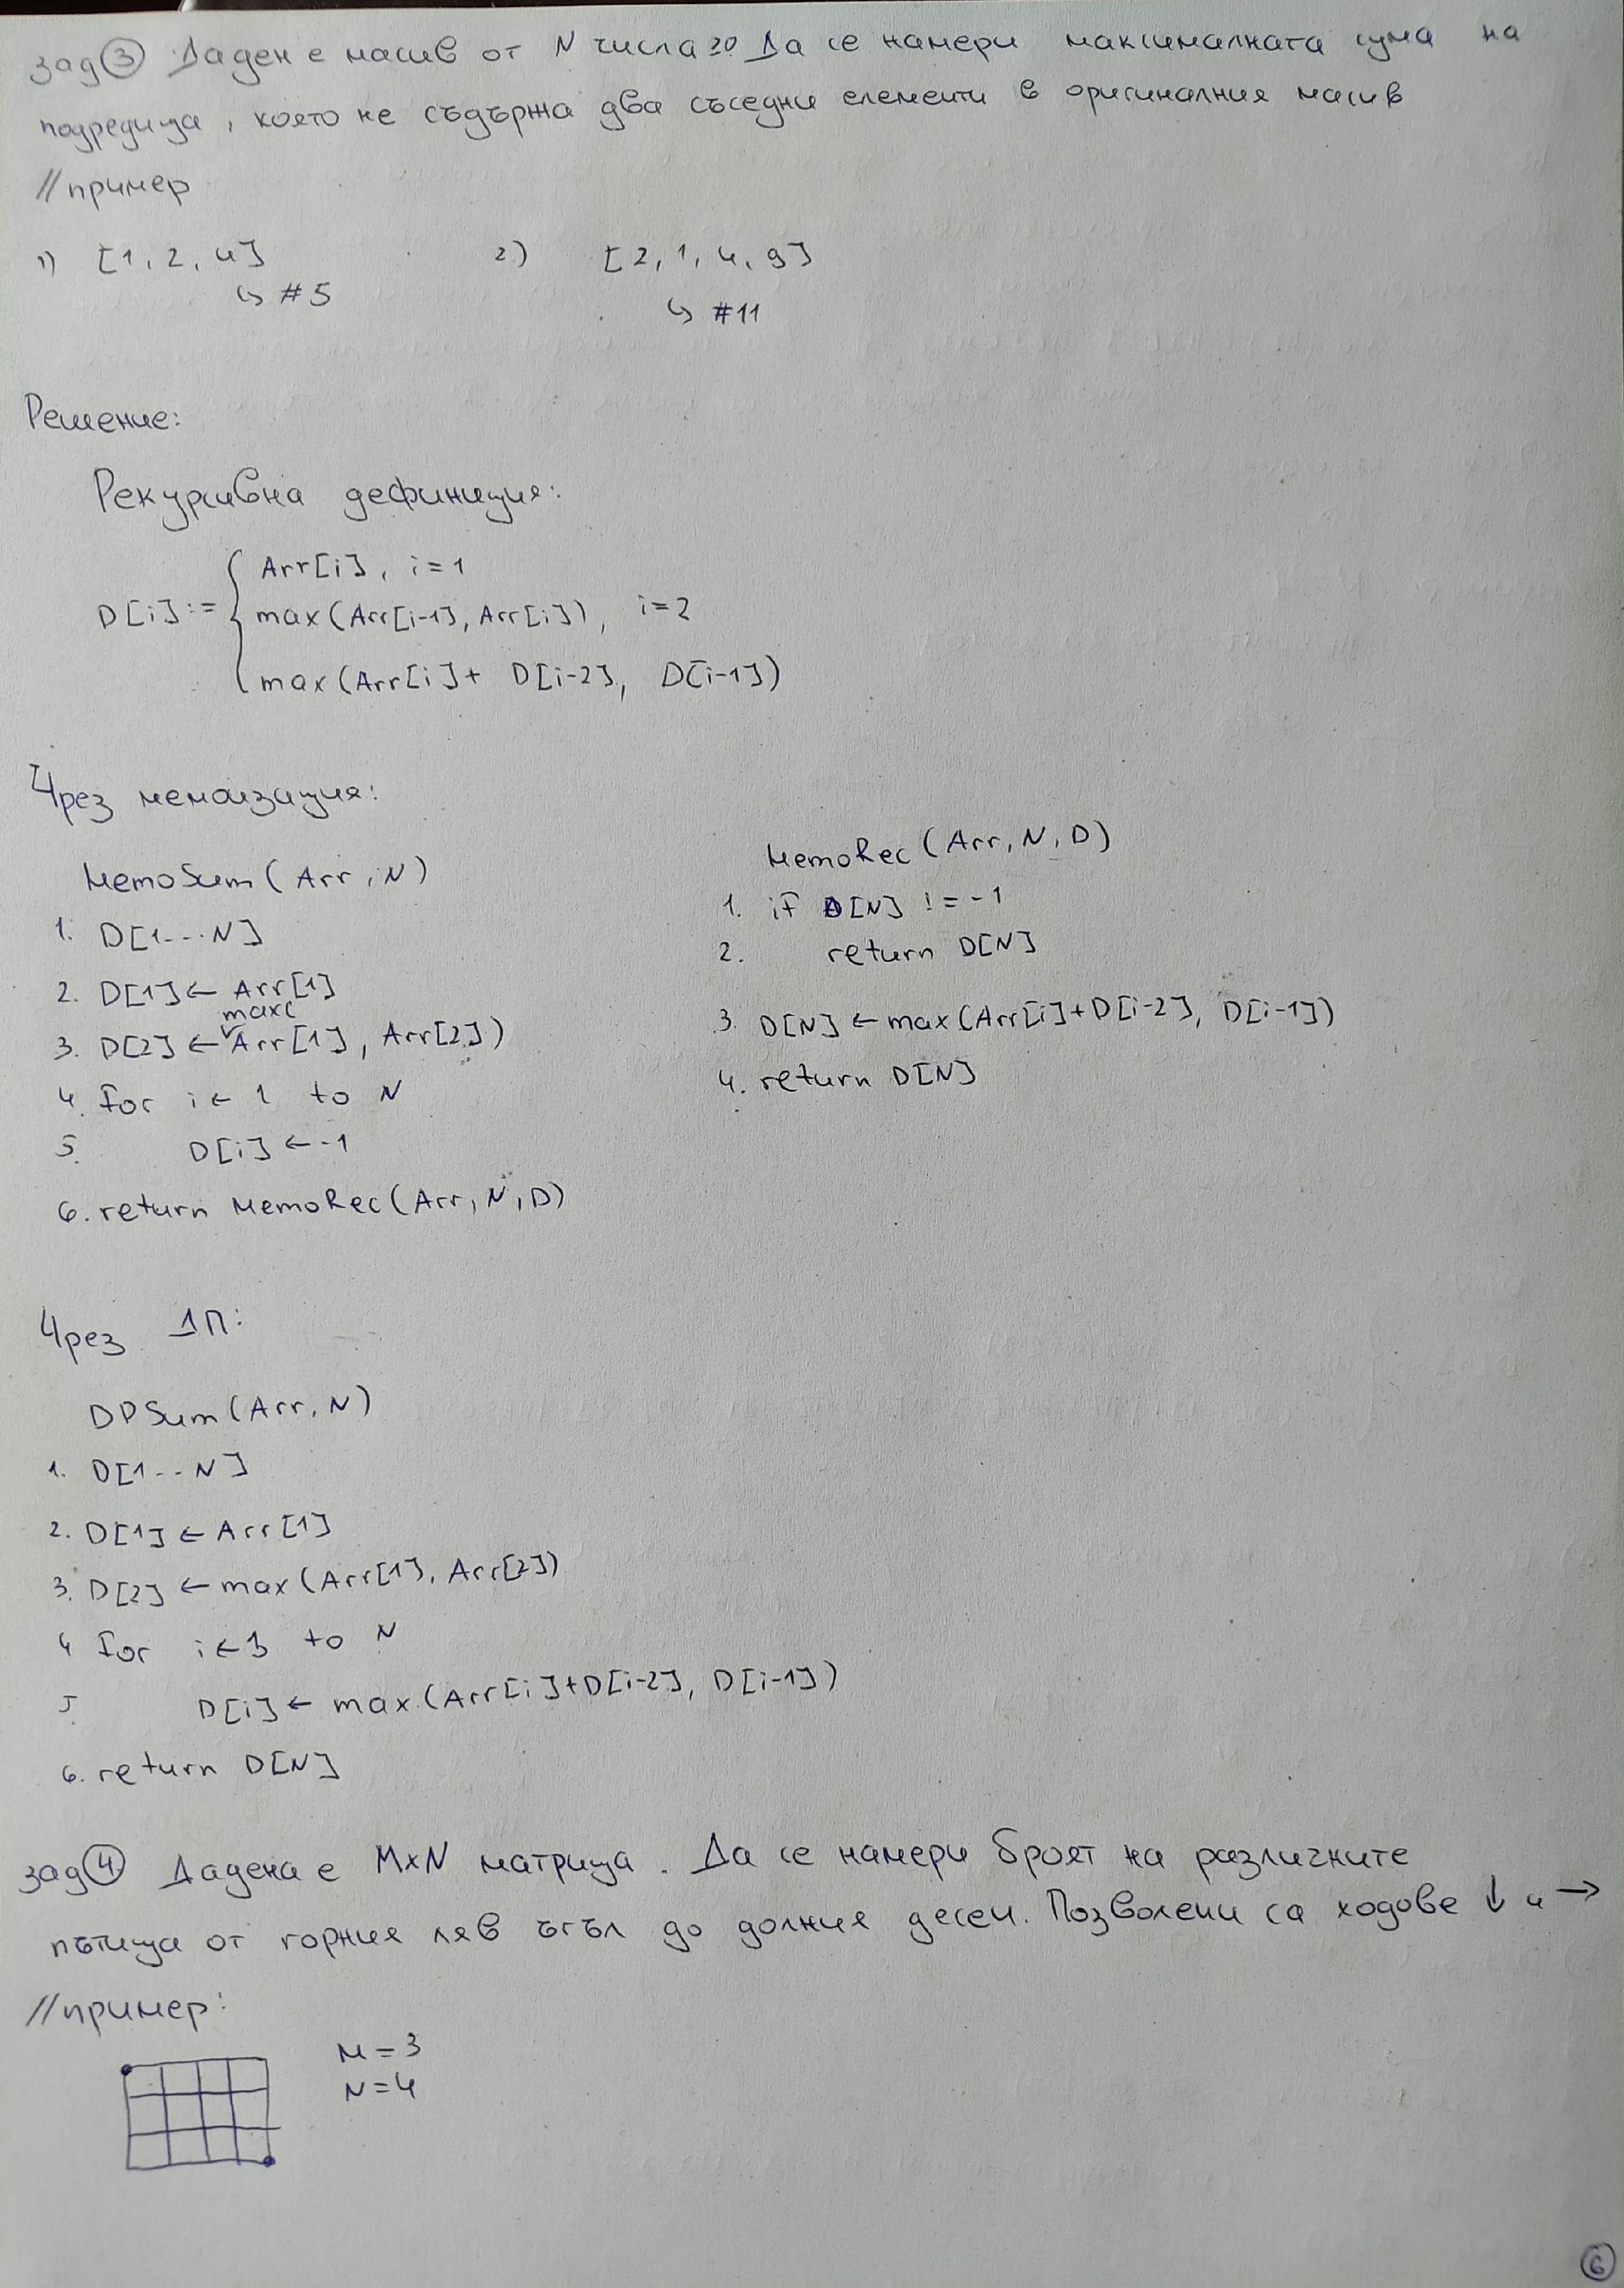 зад ③ Даден е масив от N числа ≥0 Да се намери максималната сума на
подредица, която не съдържа два съседни елементи в оригиналния масив
//пример
1) [1, 2, 4]
↳ #5
2) [2, 1, 4, 9]
↳ #11
Решение:
Рекурсивна дефиниция:
D[i] := { Arr[i], i=1
max(Arr[i-1], Arr[i]), i=2
max(Arr[i]+ D[i-2], D[i-1])
Чрез мемоизация:
MemoSum(Arr, N)
1. D[1...N]
2. D[1] ← Arr[1]
3. D[2] ← max(Arr[1], Arr[2])
4. for i ← 1 to N
5. D[i] ← -1
6. return MemoRec(Arr, N, D)
MemoRec(Arr, N, D)
1. if D[N] != -1
2. return D[N]
3. D[N] ← max(Arr[i]+D[i-2], D[i-1])
4. return D[N]
Чрез ДП:
DPSum(Arr, N)
1. D[1..N]
2. D[1] ← Arr[1]
3. D[2] ← max(Arr[1], Arr[2])
4 for i ← 3 to N
5. D[i] ← max(Arr[i]+D[i-2], D[i-1])
6. return D[N]
зад ④ Дадена е MxN матрица. Да се намери броят на различните
пътища от горния ляв ъгъл до долния десен. Позволени са ходове ↓ и →
//пример:
M = 3
N = 4
⑥